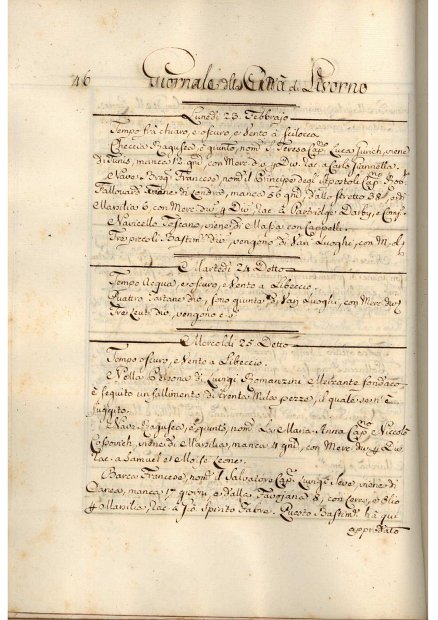 46 Giornale della Città di Livorno
Lunedì 23. Febbrajo
Tempo frà chiaro, e oscuro, e Vento à Scilocco
Checcia Ragusea è giunto, nom. S. Teresa Cap. Luca, viene
di Tunis, manca 12 gni con Merc. Rac. a Carlo Giannella.
Nave Franceose nom. il Principe degli Apostoli Cap. Rob.
viene di Londra, manca 56 gni, dallo Stretto 38, e di
Marsilia 6, con Merc. Rac. à Partridge Darby, e Comp.
Navicello Toscano, viene di Massa con Cappelli.
Tre piccoli Bastim. vengono di Van Luoghi, con M.
E Martedì 24 Detto
Tempo Acqua, e oscuro, e Vento a Libeccio.
Quattro Tartane sono giunte di Van Luoghi, con Merc.
Tre Leuti vengono
Mercoldì 25. Detto
Tempo oscuro, e Vento a Libeccio.
Nella Persona di Luigi Romanzini Mercante fondaco
è seguito un fallimento di trenta Mila pezze, il quale se n'è
fuggito.
Nave Ragusea, è giunto, nom. La Maria Anna Cap. Niccolò
viene di Marsilia, manca 4 gni, con Merc.
Rac. a Samuel et Moise Leone.
Barca Franceose, nom. il Salvatore Cap. Luigi viene di
Canea, manca 17 giorni, e dalla 8, con Cera, e Olio
Marsilia, Rac. a Gio Spirito Fabre. Questo Bastim. hà qui
approdato